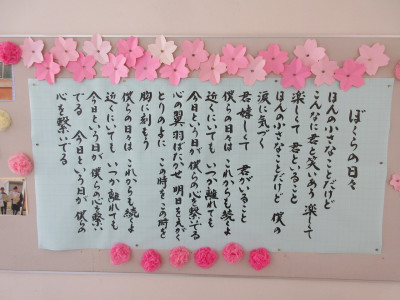 ぼくらの日々
ほんの小さなことだけど
こんなに君と笑いあう 楽しくて
楽しくて 君といること
ほんの小さなことだけど 僕の
涙に気づく
君嬉しくて 君がいること
僕らの日々は これからも続くよ
近くにいても いつか離れても
今日という日が僕らの心を繋いでる
心の翼羽ばたかせ 明日をえがく
とりのように この時をこの時を
胸に刻もう
僕らの日々は これからも 続くよ
近くにいても いつか離れても
今日という日が 僕らの心を繋い
でる 今日という日が 僕らの
心を繋いでる